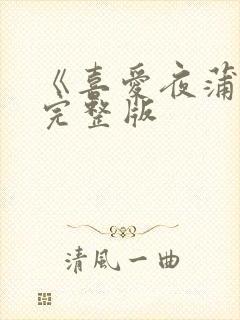 《喜愛夜蒲
完整版
清風一曲